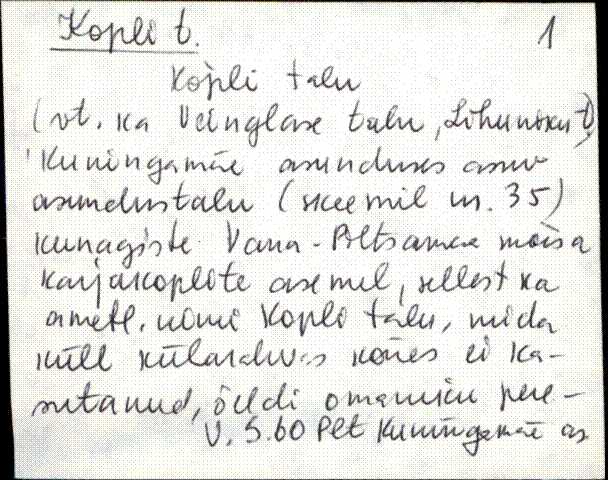 Kopli t. 1
Kopli talu
(vt. ka Veinglase talu, Lihuniku t)
Kuningamäe asunduses asuv
asundustalu (skeemil nr. 35)
kunagiste Vana-Põltsamaa mõisa
karjakoplite asemel, sellest ka
ametl. nimi Kopli talu, mida
küll külarahvas kõnes ei ka-
sutanud, öeldi omaniku pere-
V. S. 60 Plt Kuningamäe as